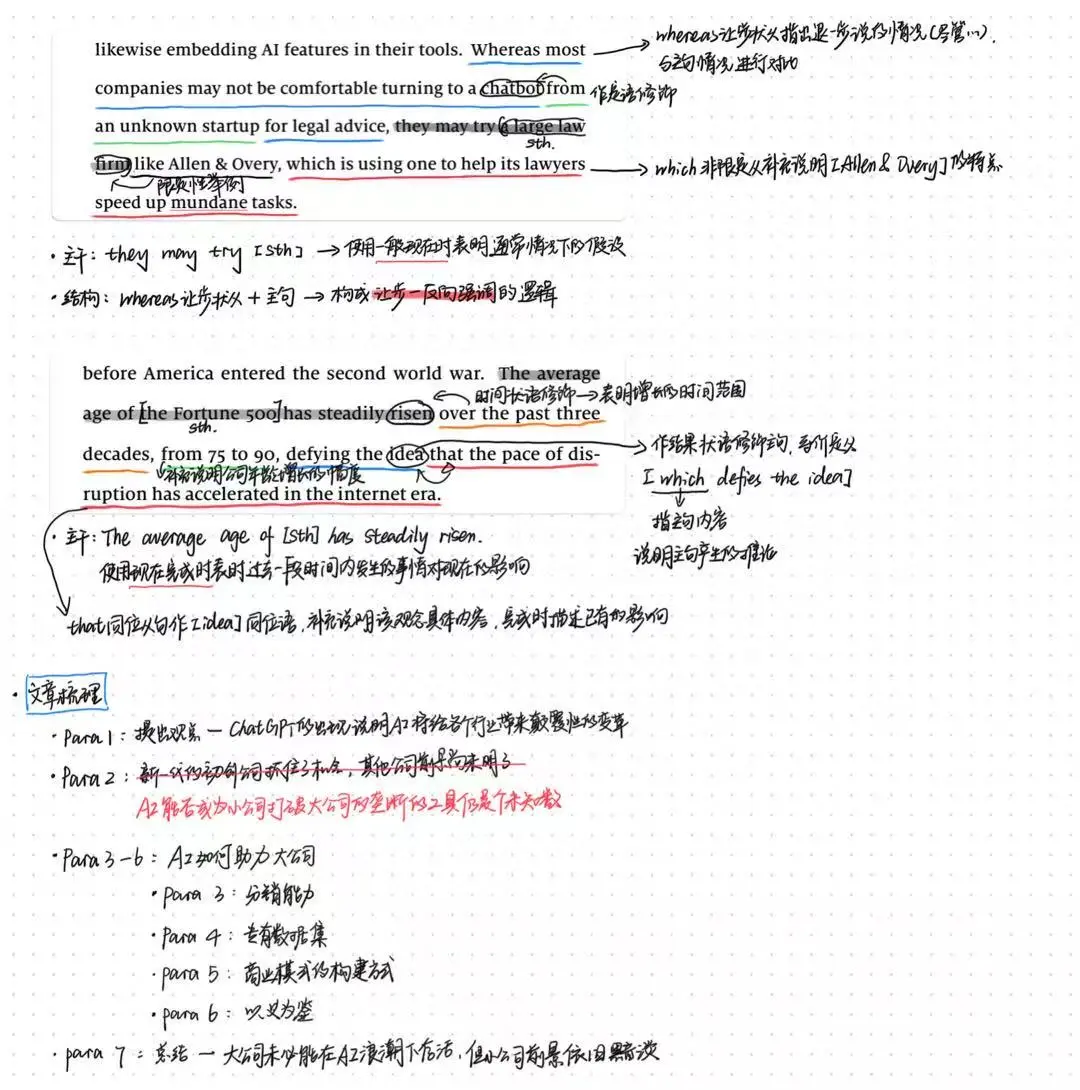 likewise embedding AI features in their tools. Whereas most
whereas让步状从指出退一步说的情况(尽管...),
与主句情况进行对比
companies may not be comfortable turning to a chatbot from
作定语修饰
an unknown startup for legal advice, they may try a large law
sth.
firm like Allen & Overy, which is using one to help its lawyers
which非限定从补充说明[Allen & Overy]的特点
限定性举例
speed up mundane tasks.
·主干: they may try [sth] → 使用一般现在时表明通常情况下的假设
·结构: whereas让步状从 + 主句 → 构成让步一反向强调的逻辑
before America entered the second world war. The average
时间状语修饰→表明增长的时间范围
age of [the Fortune 500] has steadily risen over the past three
sth.
decades, from 75 to 90, defying the idea that the pace of dis-
作结果状语修饰主句, 等价定从
补充说明公司年龄增长的幅度
[which defies the idea]
ruption has accelerated in the internet era.
指主句内容
说明主句产生的推论
·主干: The average age of [sth] has steadily risen.
使用现在完成时表时过去一段时间内发生的事情对现在的影响
that同位从句作[idea]同位语, 补充说明该观念具体内容, 完成时描述已有的影响
·文章梳理
·Para 1: 提出观点 — ChatGPT的出现说明AI将给各行业带来颠覆性的变革
·Para 2: 新一代的初创公司抓住了机会, 其他公司前景尚未明了
AI能否成为小公司打破大公司的垄断的工具仍是个未知数
·Para 3-6: AI如何助力大公司
·para 3: 分销能力
·Para 4: 专有数据集
·para 5: 商业模式的构建方式
·para 6: 以史为鉴
·para 7: 总结 — 大公司未必能在AI浪潮下存活, 但小公司前景依旧黯淡